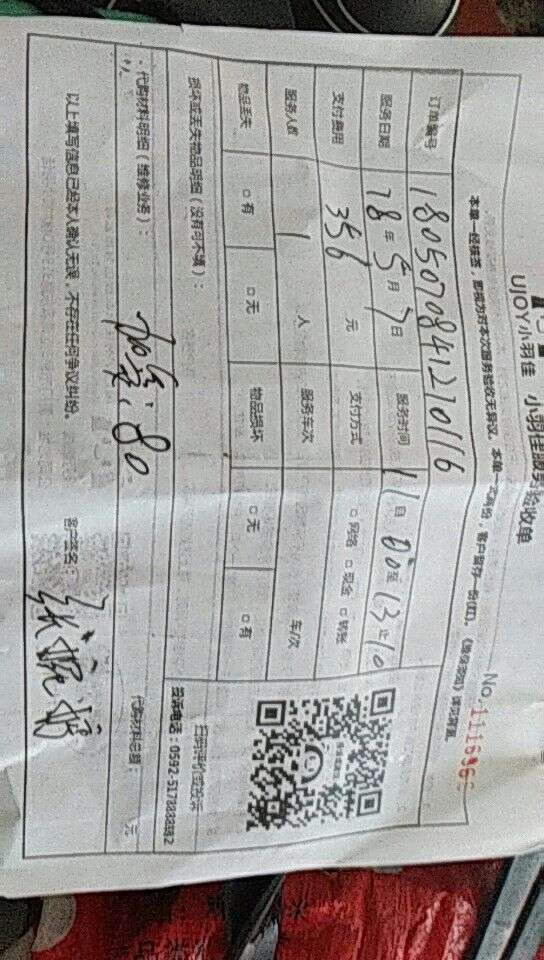 UJOY小羽佳 小羽佳服务验收单
本单一经核签，即视为对本次服务验收无异议。本单一式两份，客户留存一份(红)。
订单编号 1805070841210116
服务日期 18年5月7日 服务时间
支付费用 356 元 支付方式 □网络 □现金 □转账
服务人数 1 人 服务车次 车/次
物品丢失 □有 □无 物品损坏 □无 □有
损坏或丢失物品明细（没有可不填）：
扫码评价或投诉
投诉电话：0592-5178888转2
代购材料明细（维修业务）：
80
代购材料总额： 元
以上填写信息已经本人确认无误，不存在任何争议纠纷。 客户签名：